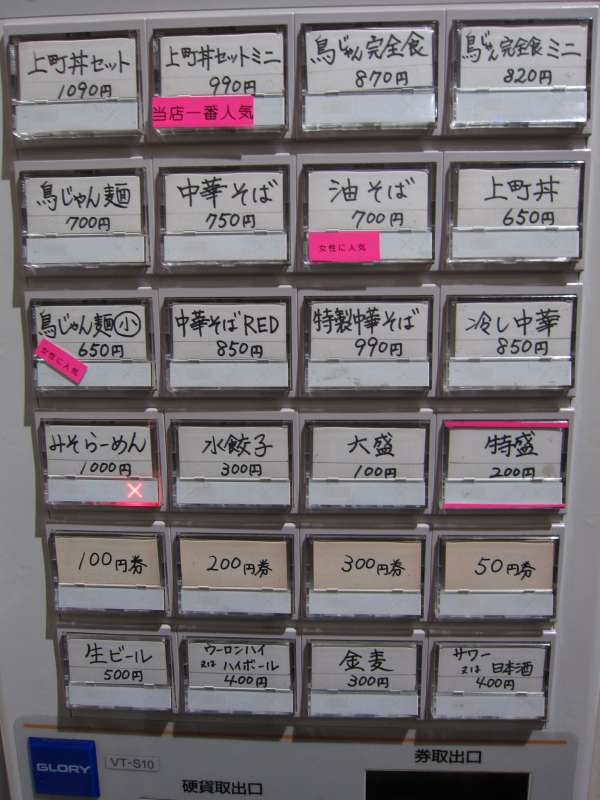 上町丼セット
1090円
上町丼セットミニ
990円
当店一番人気
鳥じゃん完全食
870円
鳥じゃん完全食ミニ
820円
鳥じゃん麺
700円
中華そば
750円
油そば
700円
女性に人気
上町丼
650円
鳥じゃん麺小
650円
女性に人気
中華そばRED
850円
特製中華そば
990円
冷し中華
850円
みそらーめん
1000円
×
水餃子
300円
大盛
100円
特盛
200円
100円券
200円券
300円券
50円券
生ビール
500円
ウーロンハイ
又は ハイボール
400円
金麦
300円
サワー
又は 日本酒
400円
GLORY
VT-S10
硬貨取出口
券取出口